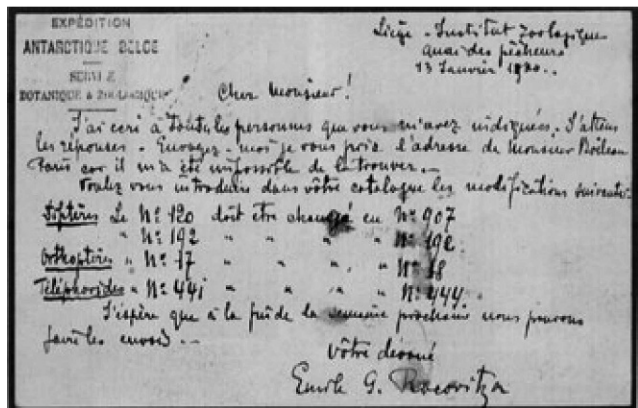 EXPÉDITION
ANTARCTIQUE BELGE
SERVICE
BOTANIQUE & ZOOLOGIQUE
Liége - Institut Zoologique
quai des pêcheurs
13 Janvier 1900..
Cher Monsieur!
J'ai ecri à toutes les personnes que vous m'avez indiquées. J'attens
les réponses. Envoyez-moi je vous prie l'adresse de Monsieur
Paris car il m'a été impossible de la trouver. --
Voulez vous introduire dans vôtre catalogue les modifications suivantes:
Diptères Le Nº 120 doit être changé en Nº 907
" Nº 192 " " " " Nº 19
Orthoptères " Nº 17 " " " " Nº 18
Téléphorides " Nº 441 " " " " Nº 444.
J'espère que à la fin de la semaine prochaine nous pouvons
faire les envois. --
Vôtre dévoué
Emile G. Racovitza